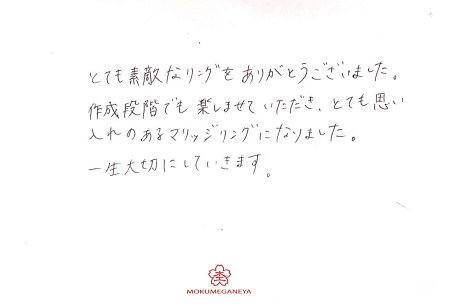 とても素敵なリングをありがとうございました。
作成段階でも楽しませていただき、とても思い
入れのあるマリッジリングになりました。
一生大切にしていきます。
MOKUMEGANEYA